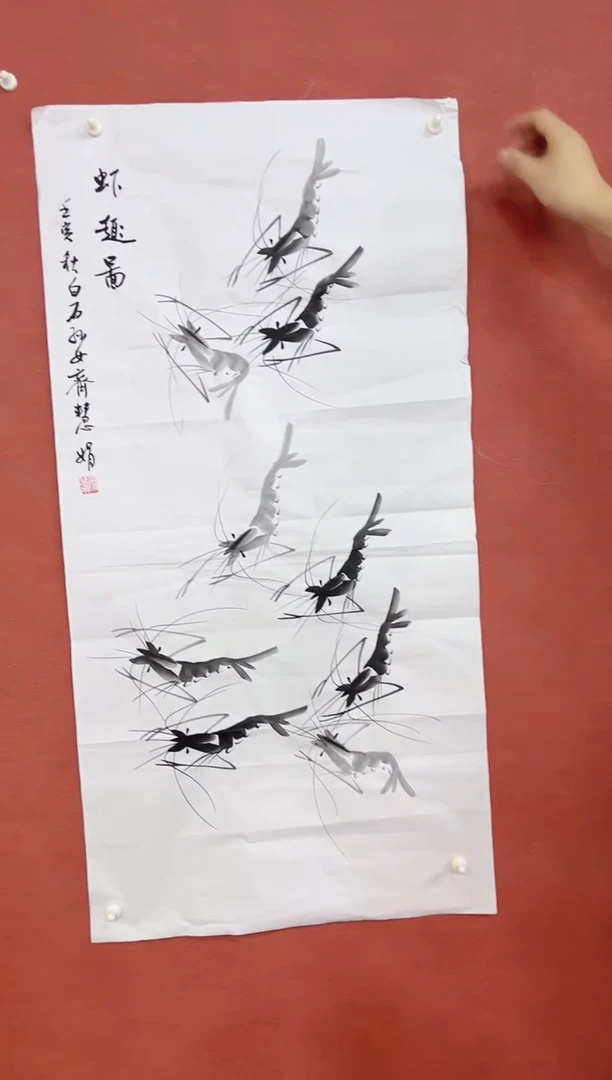 虾趣图
壬寅秋白石孙女齐慧娟